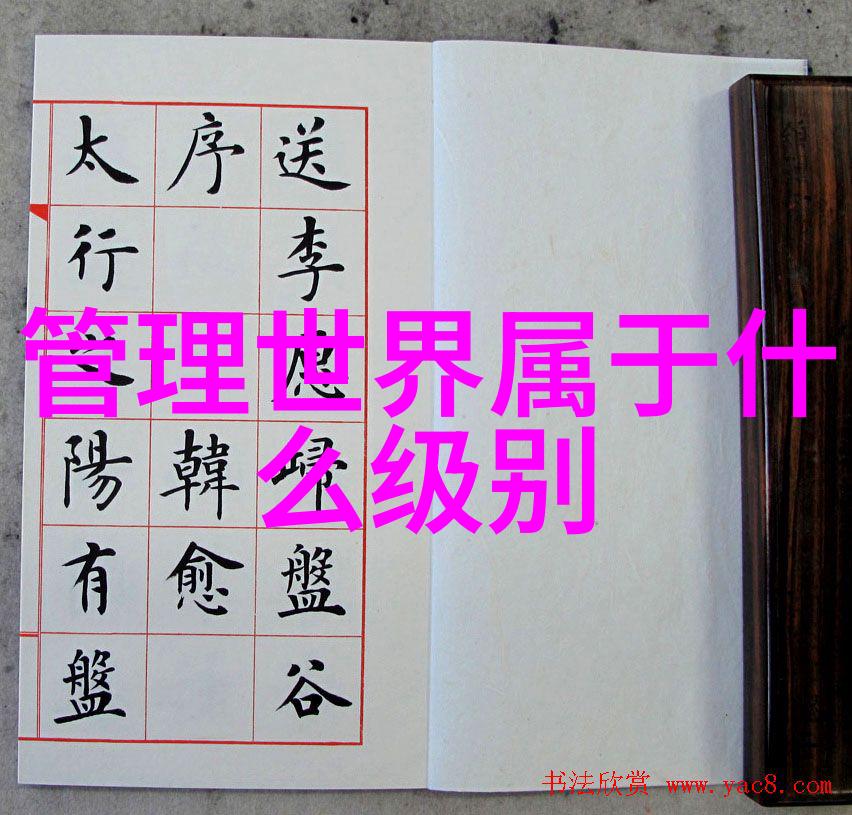 送李愿歸盤谷
序 韓愈
太行之陽有盤
管理世界属于什
么级别
书法欣赏 www.yac8.com